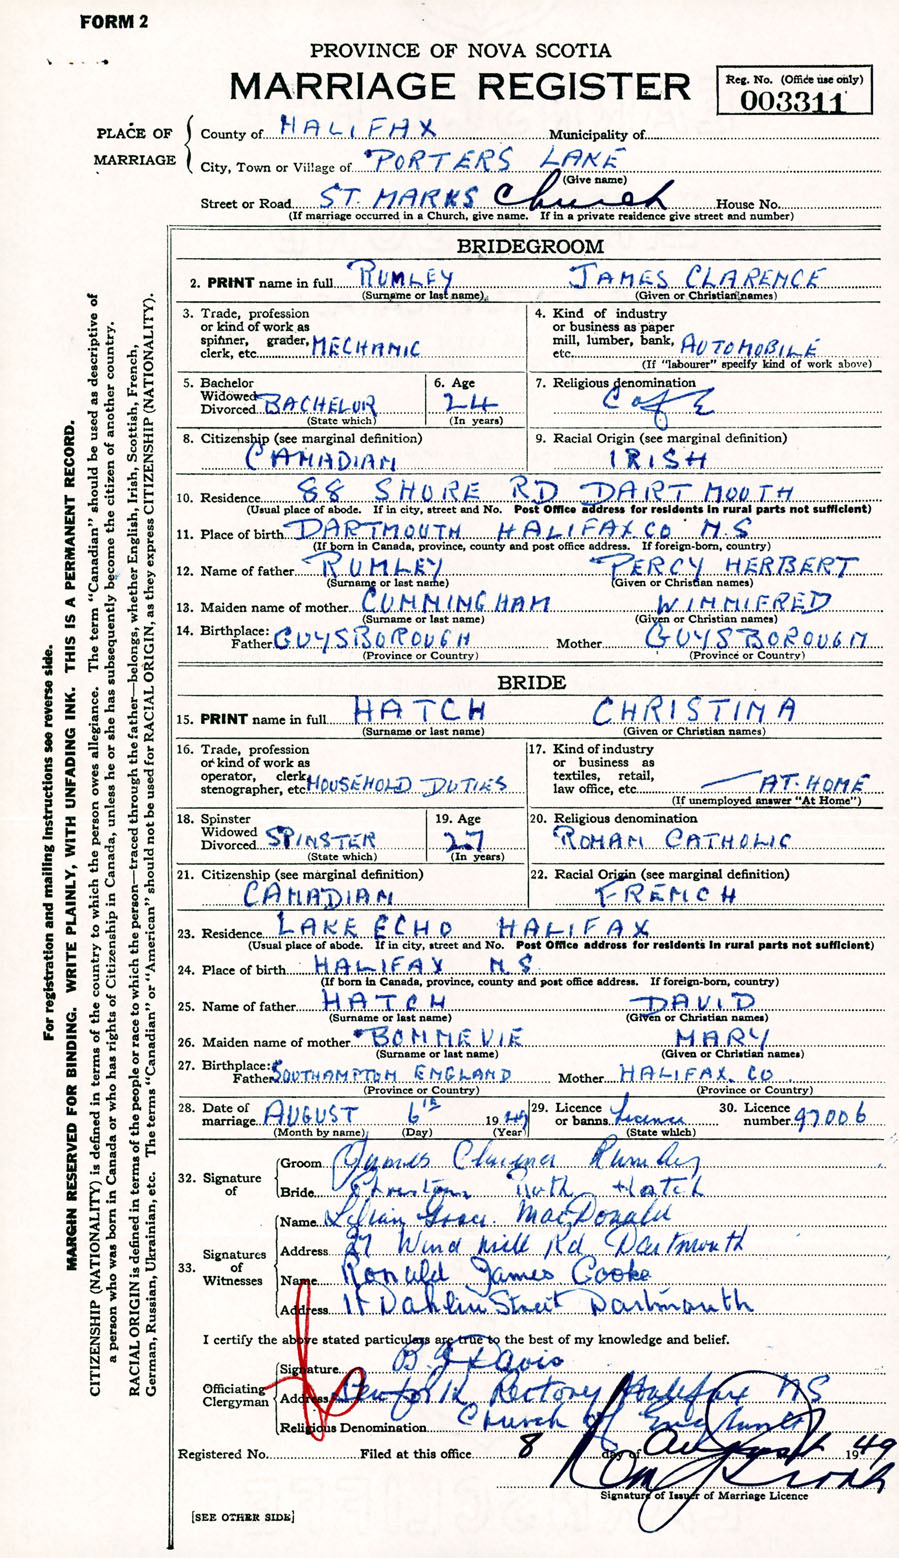 FORM 2
PROVINCE OF NOVA SCOTIA
MARRIAGE REGISTER
Reg. No. (Office use only)
003311
PLACE OF MARRIAGE
County of HALIFAX Municipality of
City, Town or Village of PORTERS LAKE
(Give name)
Street or Road ST. MARKS Church House No.
(If marriage occurred in a Church, give name. If in a private residence give street and number)
BRIDEGROOM
2. PRINT name in full RUMLEY JAMES CLARENCE
(Surname or last name) (Given or Christian names)
3. Trade, profession or kind of work as spinner, grader, clerk, etc. MECHANIC
4. Kind of industry or business as paper mill, lumber, bank, etc. AUTOMOBILE
(If "labourer" specify kind of work above)
5. Bachelor Widowed Divorced BACHELOR
(State which)
6. Age 24
(In years)
7. Religious denomination C of E
8. Citizenship (see marginal definition)
CANADIAN
9. Racial Origin (see marginal definition)
IRISH
10. Residence 88 SHORE RD DARTMOUTH
(Usual place of abode. If in city, street and No. Post Office address for residents in rural parts not sufficient)
11. Place of birth DARTMOUTH HALIFAX CO N.S
(If born in Canada, province, county and post office address. If foreign-born, country)
12. Name of father RUMLEY PERCY HERBERT
(Surname or last name) (Given or Christian names)
13. Maiden name of mother CUNNINGHAM WINNIFRED
(Surname or last name) (Given or Christian names)
14. Birthplace: Father GUYSBOROUGH Mother GUYSBOROUGH
(Province or Country) (Province or Country)
BRIDE
15. PRINT name in full HATCH CHRISTINA
(Surname or last name) (Given or Christian names)
16. Trade, profession or kind of work as operator, clerk, stenographer, etc. HOUSEHOLD DUTIES
17. Kind of industry or business as textiles, retail, law office, etc. AT-HOME
(If unemployed answer "At Home")
18. Spinster Widowed Divorced SPINSTER
(State which)
19. Age 27
(In years)
20. Religious denomination
ROMAN CATHOLIC
21. Citizenship (see marginal definition)
CANADIAN
22. Racial Origin (see marginal definition)
FRENCH
23. Residence LAKE ECHO HALIFAX
(Usual place of abode. If in city, street and No. Post Office address for residents in rural parts not sufficient)
24. Place of birth HALIFAX N.S.
(If born in Canada, province, county and post office address. If foreign-born, country)
25. Name of father HATCH DAVID
(Surname or last name) (Given or Christian names)
26. Maiden name of mother BONNEVIE MARY
(Surname or last name) (Given or Christian names)
27. Birthplace: Father SOUTHAMPTON ENGLAND Mother HALIFAX CO.
(Province or Country) (Province or Country)
28. Date of marriage AUGUST 6th 1949
(Month by name) (Day) (Year)
29. Licence or banns Licence
(State which)
30. Licence number 97006
32. Signature of
Groom James Clarence Rumley
Bride Hatch
33. Signatures of Witnesses
Name Lilian Grace MacDonald
Address 27 Wind mill Rd Dartmouth
Name Ronald James Cooke
Address Dahlia Street Dartmouth
I certify the above stated particulars are true to the best of my knowledge and belief.
Officiating Clergyman
Signature Davis
Address Rectory Halifax NS
Religious Denomination Church of England
Registered No. Filed at this office 8 day of August 1949
Signature of Issuer of Marriage Licence
[SEE OTHER SIDE]
For registration and mailing instructions see reverse side.
MARGIN RESERVED FOR BINDING. WRITE PLAINLY, WITH UNFADING INK. THIS IS A PERMANENT RECORD.
CITIZENSHIP (NATIONALITY) is defined in terms of the country to which the person owes allegiance. The term "Canadian" should be used as descriptive of
a person who was born in Canada or who has rights of Citizenship in Canada, unless he or she has subsequently become the citizen of another country.
RACIAL ORIGIN is defined in terms of the people or race to which the person—traced through the father—belongs, whether English, Irish, Scottish, French,
German, Russian, Ukrainian, etc. The terms "Canadian" or "American" should not be used for RACIAL ORIGIN, as they express CITIZENSHIP (NATIONALITY).